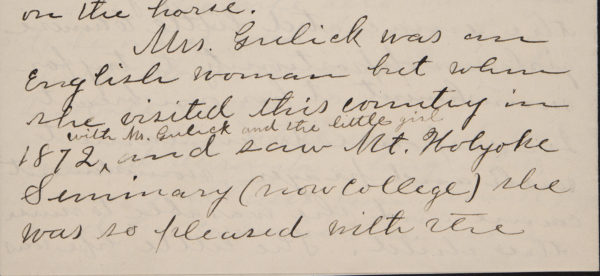 on the horse.
Mrs. Gulick was an
English woman but when
she visited this country in
with Mr. Gulick and the little girl
1872, and saw Mt. Holyoke
Seminary (now College) she
was so pleased with the